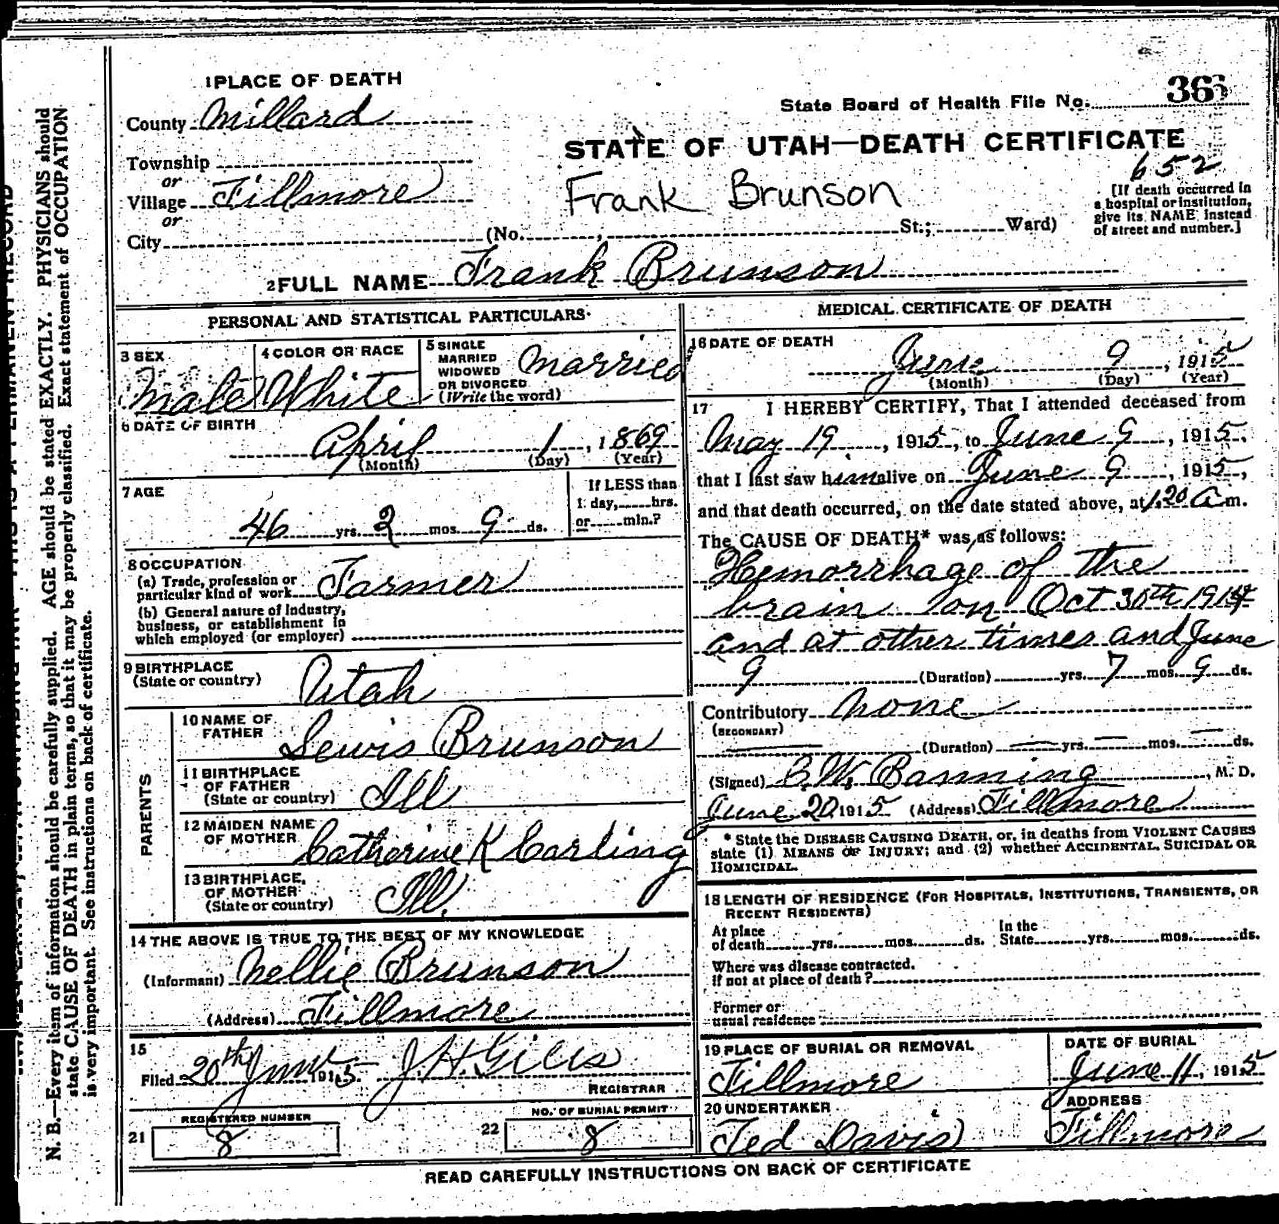 1 PLACE OF DEATH
County Millard
State Board of Health File No. 36
STATE OF UTAH—DEATH CERTIFICATE
652
Township
or
Village Fillmore
or
Frank Brunson
[If death occurred in
a hospital or institution,
give its NAME instead
of street and number.]
City (No. , St.; Ward)
2 FULL NAME Frank Brunson
PERSONAL AND STATISTICAL PARTICULARS
3 SEX
Male
4 COLOR OR RACE
White
5 SINGLE
MARRIED
WIDOWED
OR DIVORCED
(Write the word)
Married
6 DATE OF BIRTH
April 1, 1869
(Month) (Day) (Year)
7 AGE
46 yrs. 2 mos. 9 ds.
If LESS than
1 day, hrs.
or min.?
8 OCCUPATION
(a) Trade, profession or
particular kind of work Farmer
(b) General nature of Industry,
business, or establishment in
which employed (or employer)
9 BIRTHPLACE
(State or country) Utah
PARENTS
10 NAME OF
FATHER Lewis Brunson
11 BIRTHPLACE
OF FATHER
(State or country) Ill
12 MAIDEN NAME
OF MOTHER Catherine K Carling
13 BIRTHPLACE,
OF MOTHER
(State or country) Ill.
14 THE ABOVE IS TRUE TO THE BEST OF MY KNOWLEDGE
(Informant) Nellie Brunson
(Address) Fillmore
15
Filed 20th June 1915 J H Giles
REGISTRAR
REGISTERED NUMBER
21 8
NO. OF BURIAL PERMIT
22 8
MEDICAL CERTIFICATE OF DEATH
16 DATE OF DEATH
June 9, 1915
(Month) (Day) (Year)
17 I HEREBY CERTIFY, That I attended deceased from
May 19, 1915, to June 9, 1915,
that I last saw him alive on June 9, 1915,
and that death occurred, on the date stated above, at 1.20 a m.
The CAUSE OF DEATH* was as follows:
Hemorrhage of the
brain on Oct 30th 1914
and at other times and June
9 (Duration) yrs. 7 mos. 9 ds.
Contributory none
(SECONDARY)
(Duration) — yrs. — mos. — ds.
(Signed) Banning, M. D.
June 20 1915 (Address) Fillmore
* State the DISEASE CAUSING DEATH, or, in deaths from VIOLENT CAUSES
state (1) MEANS OF INJURY; and (2) whether ACCIDENTAL, SUICIDAL OR
HOMICIDAL.
18 LENGTH OF RESIDENCE (FOR HOSPITALS, INSTITUTIONS, TRANSIENTS, OR
RECENT RESIDENTS)
At place
of death yrs. mos. ds.
In the
State yrs. mos. ds.
Where was disease contracted,
if not at place of death?
Former or
usual residence
19 PLACE OF BURIAL OR REMOVAL
Fillmore
DATE OF BURIAL
June 11, 1915
20 UNDERTAKER
Ted Davis
ADDRESS
Fillmore
READ CAREFULLY INSTRUCTIONS ON BACK OF CERTIFICATE
N. B.—Every item of information should be carefully supplied. AGE should be stated EXACTLY. PHYSICIANS should
state CAUSE OF DEATH in plain terms, so that it may be properly classified. Exact statement of OCCUPATION
is very important. See instructions on back of certificate.